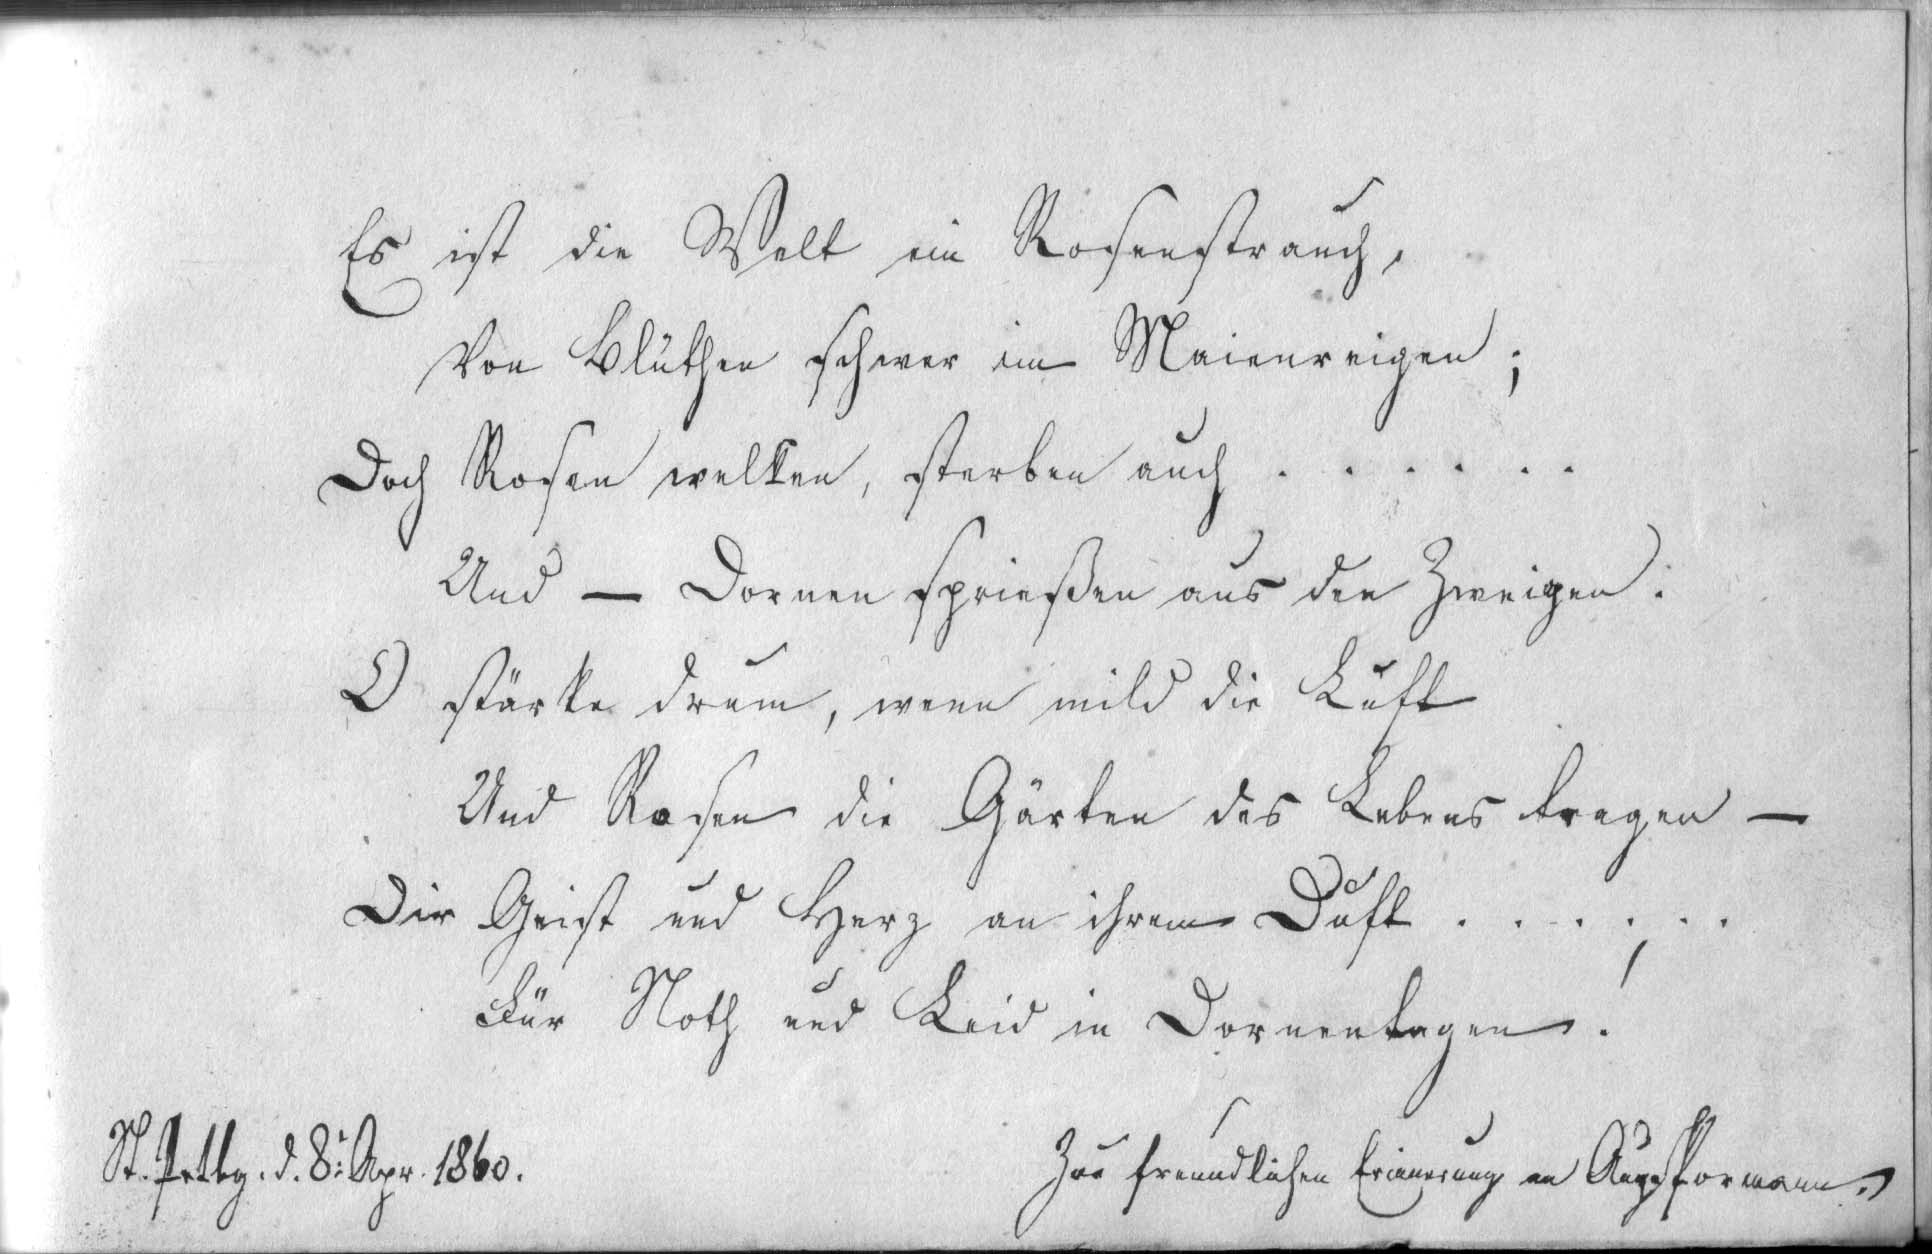 Es ist die Welt ein Rosenstrauch,
Von Blüthen schwer im Maienreigen;
Doch Rosen welken, sterben auch . . . . . .
Und — Dornen sprießen aus den Zweigen.
O stärke drum, wenn mild die Luft
Und Rosen die Gärten des Lebens tragen —
Dir Geist und Herz an ihrem Duft . . . . . .
Für Noth und Leid in Dornentagen!
St. Petbg. d. 8: Apr. 1860.
Zur freundlichen Erinnerung an Aug.